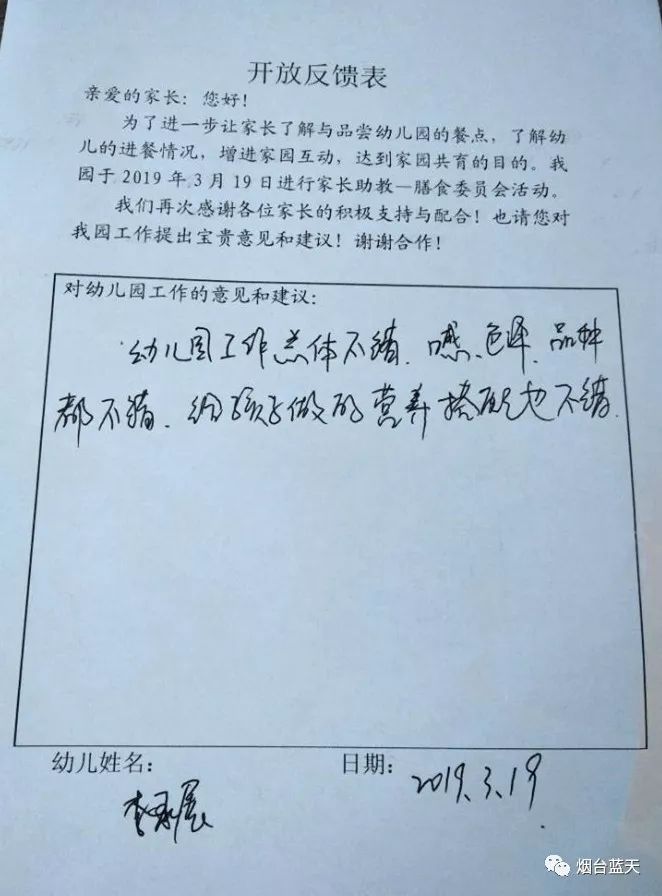 开放反馈表
亲爱的家长：您好！
为了进一步让家长了解与品尝幼儿园的餐点，了解幼
儿的进餐情况，增进家园互动，达到家园共育的目的。我
园于2019年3月19日进行家长助教—膳食委员会活动。
我们再次感谢各位家长的积极支持与配合！也请您对
我园工作提出宝贵意见和建议！谢谢合作！
对幼儿园工作的意见和建议：
幼儿园工作总体不错、口感、色泽、品种
都不错、给孩子做的营养搭配也不错.
幼儿姓名： 日期：2019.3.19
李承展
烟台蓝天